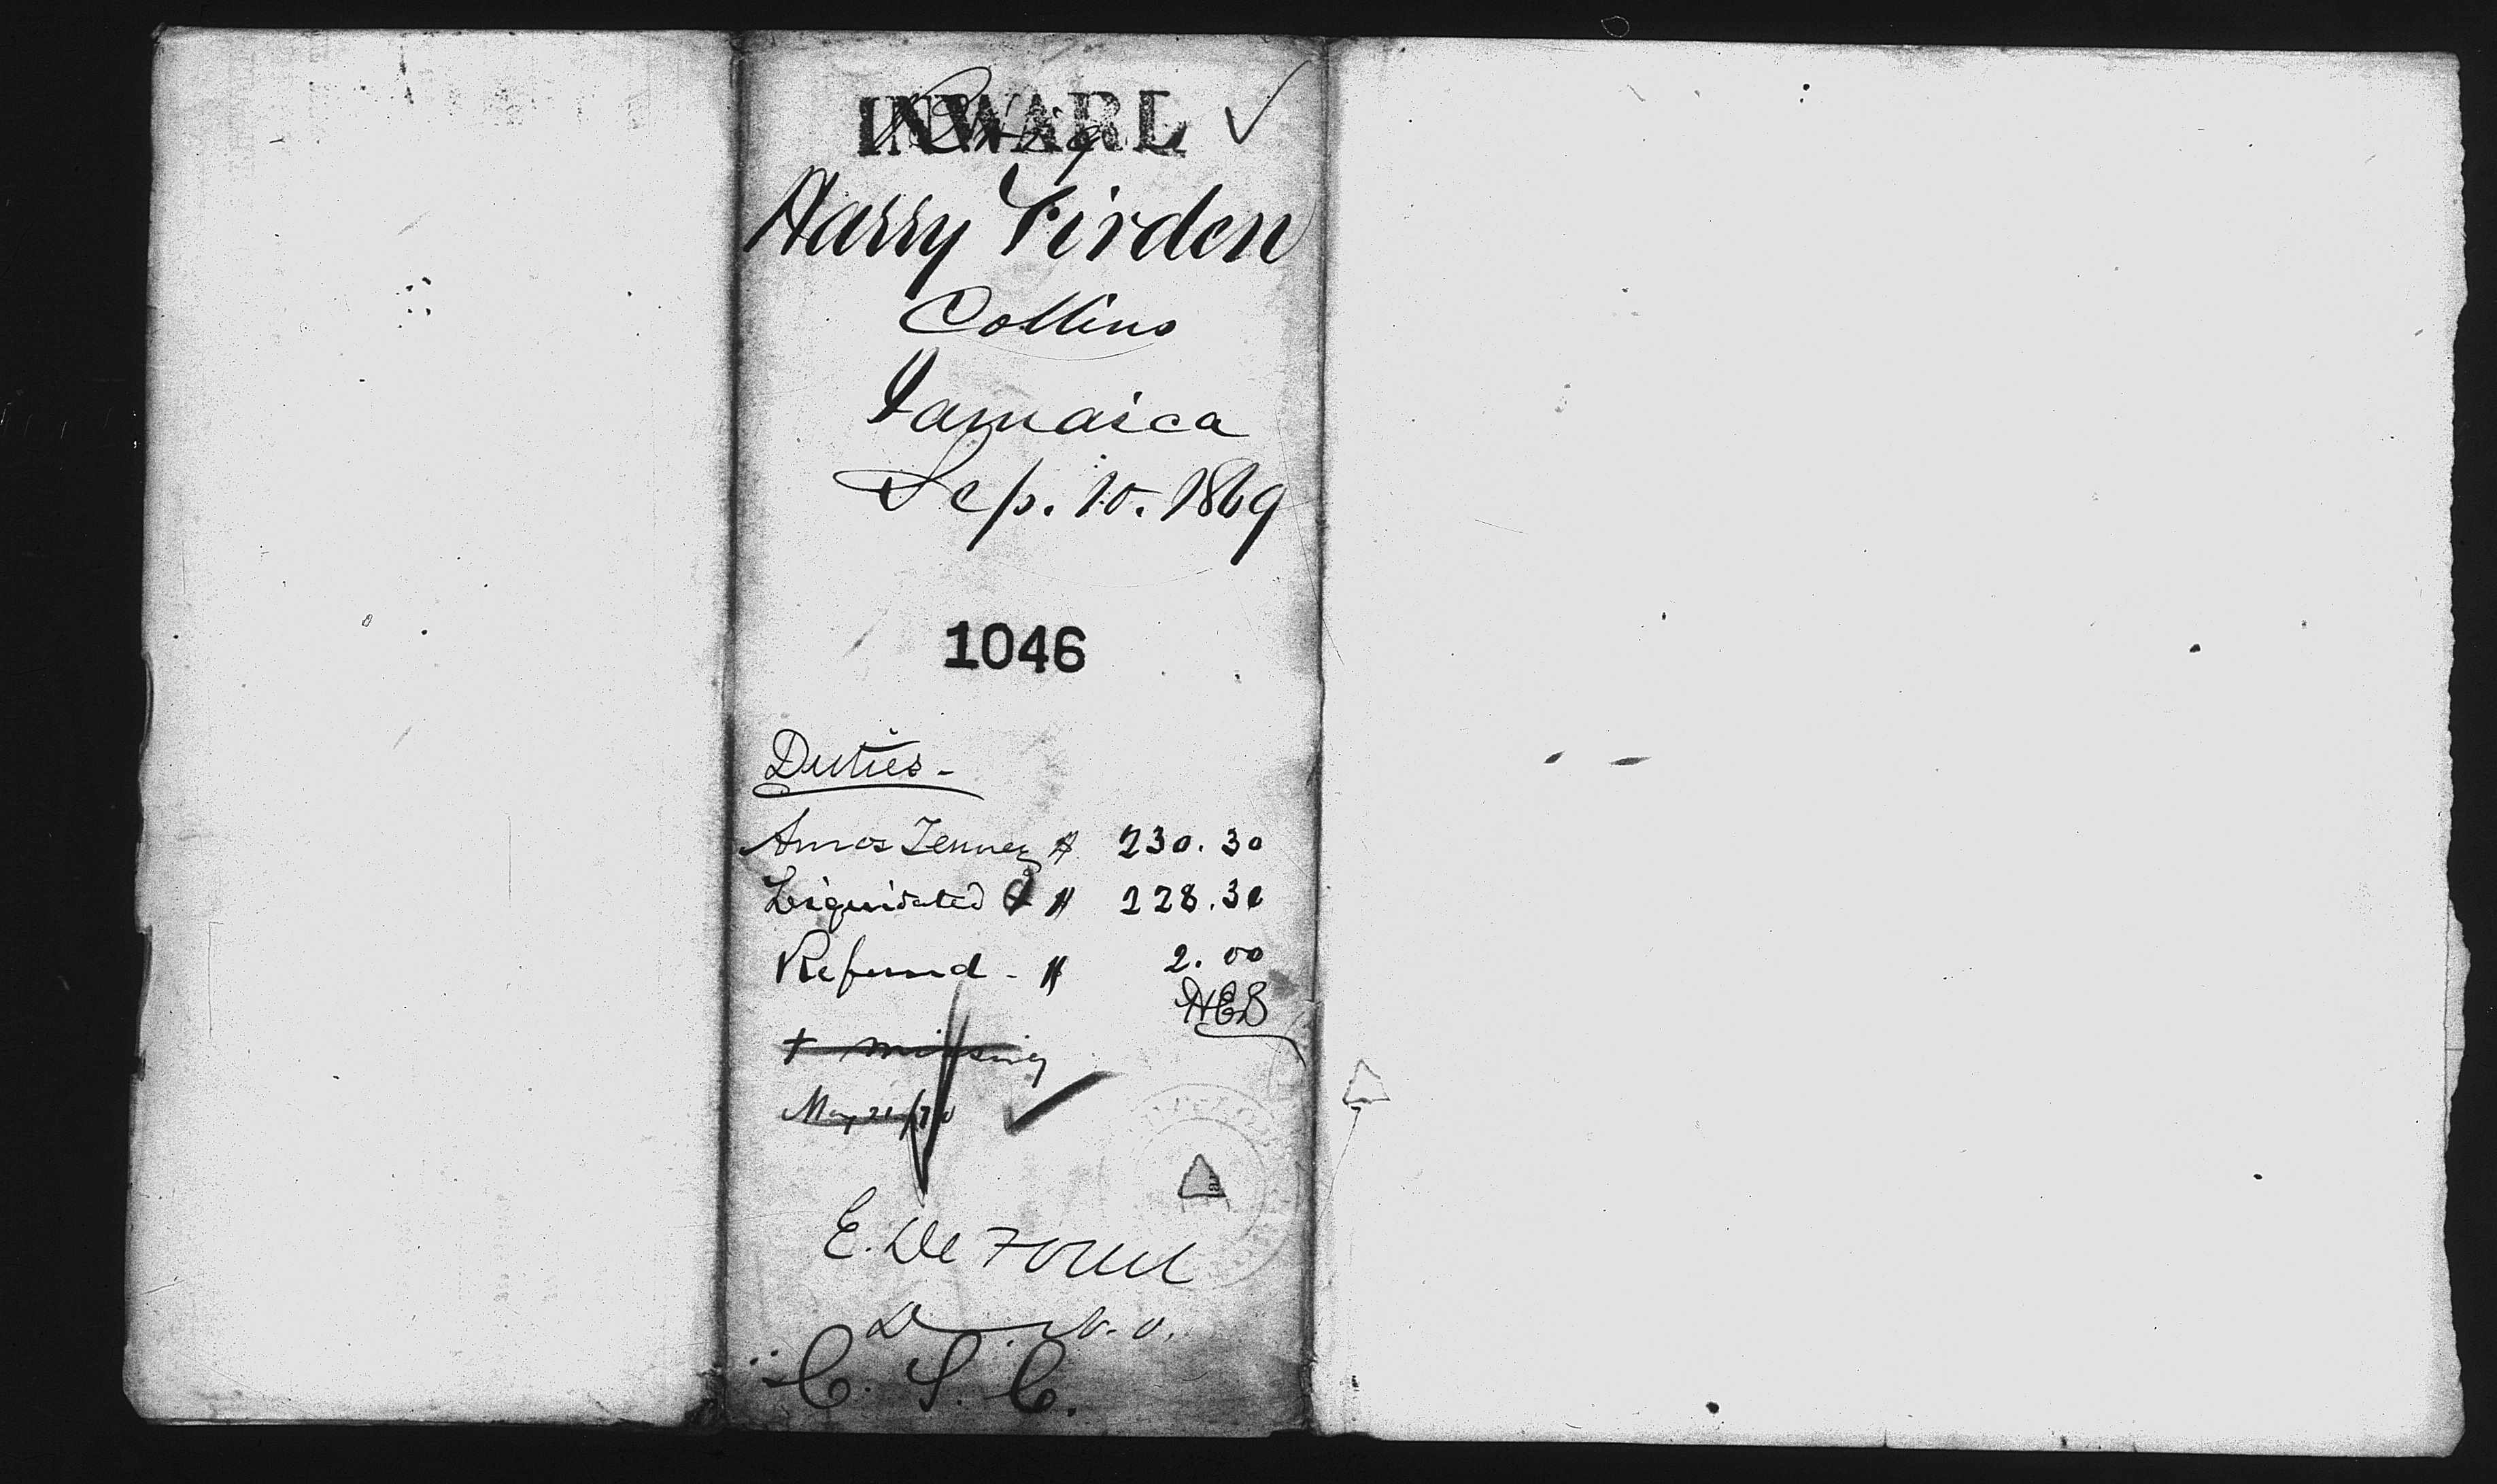 INWARD
Brig
Harry Virden
Collins
Jamaica
Sep. 10. 1869
1046
Duties-
Amos Tenney $ 230.30
Liquidated @ $ 228.30
Refund - $ 2.00
HEB
+ missing
May 21/70
E. De
D N.O.
C. S. C.